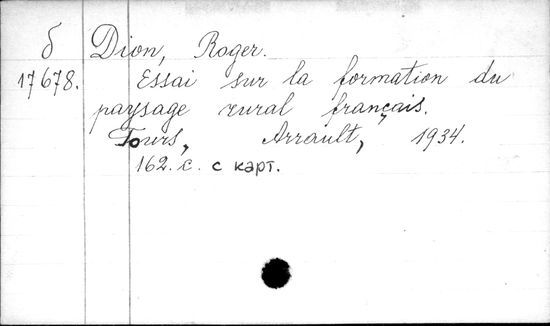 б Dion, Roger.
17678. Essai sur la formation du
paysage rural français.
Tours, Arrault, 1934.
162. с. с карт.